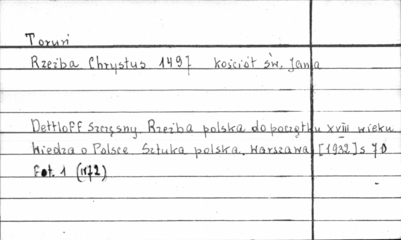 Toruń
Rzeźba Chrystus 1497 kościół św. Jana
Dettloff Szczęsny, Rzeźba polska do początku XVIII wieku
Wiedza o Polsce Sztuka polska, Warszawa [1932] s 70
Fot. 1 (1172)